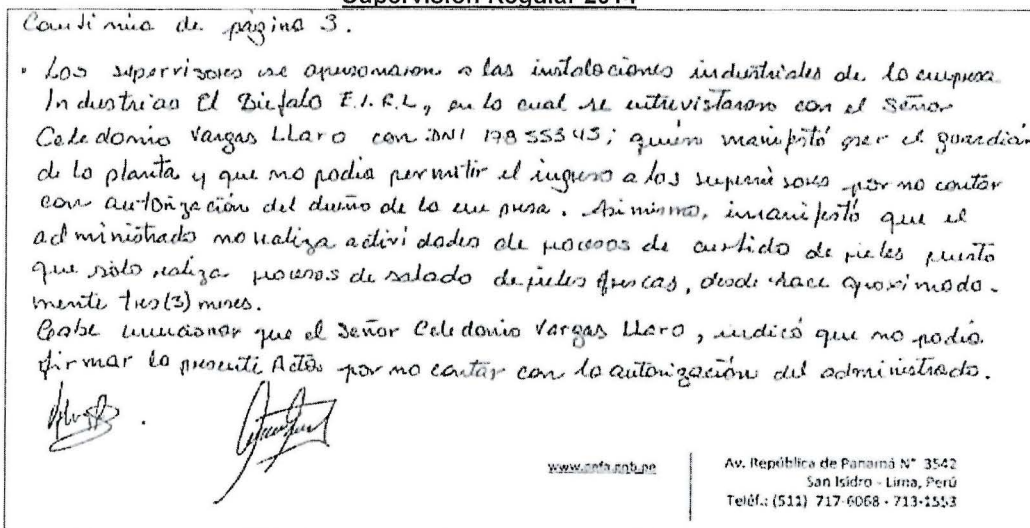 Supervisión Regular 2014
Continúa de página 3.
• Los supervisores se apersonaron a las instalaciones industriales de la empresa
Industrias El Búfalo E.I.R.L, en la cual se entrevistaron con el Señor
Celedonio Vargas LLaro con DNI 17855345; quién manifestó ser el guardián
de la planta y que no podía permitir el ingreso a los supervisores por no contar
con autorización del dueño de la empresa. Asimismo, manifestó que el
administrado no realiza actividades de procesos de curtido de pieles puesto
que sólo realiza procesos de salado de pieles frescas, desde hace aproximada-
mente tres (3) meses.
Cabe mencionar que el Señor Celedonio Vargas Llaro, indicó que no podía
firmar la presente Acta por no contar con la autorización del administrado.
www.oefa.gob.pe
Av. República de Panamá N° 3542
San Isidro - Lima, Perú
Teléf.: (511) 717-6068 - 713-1553